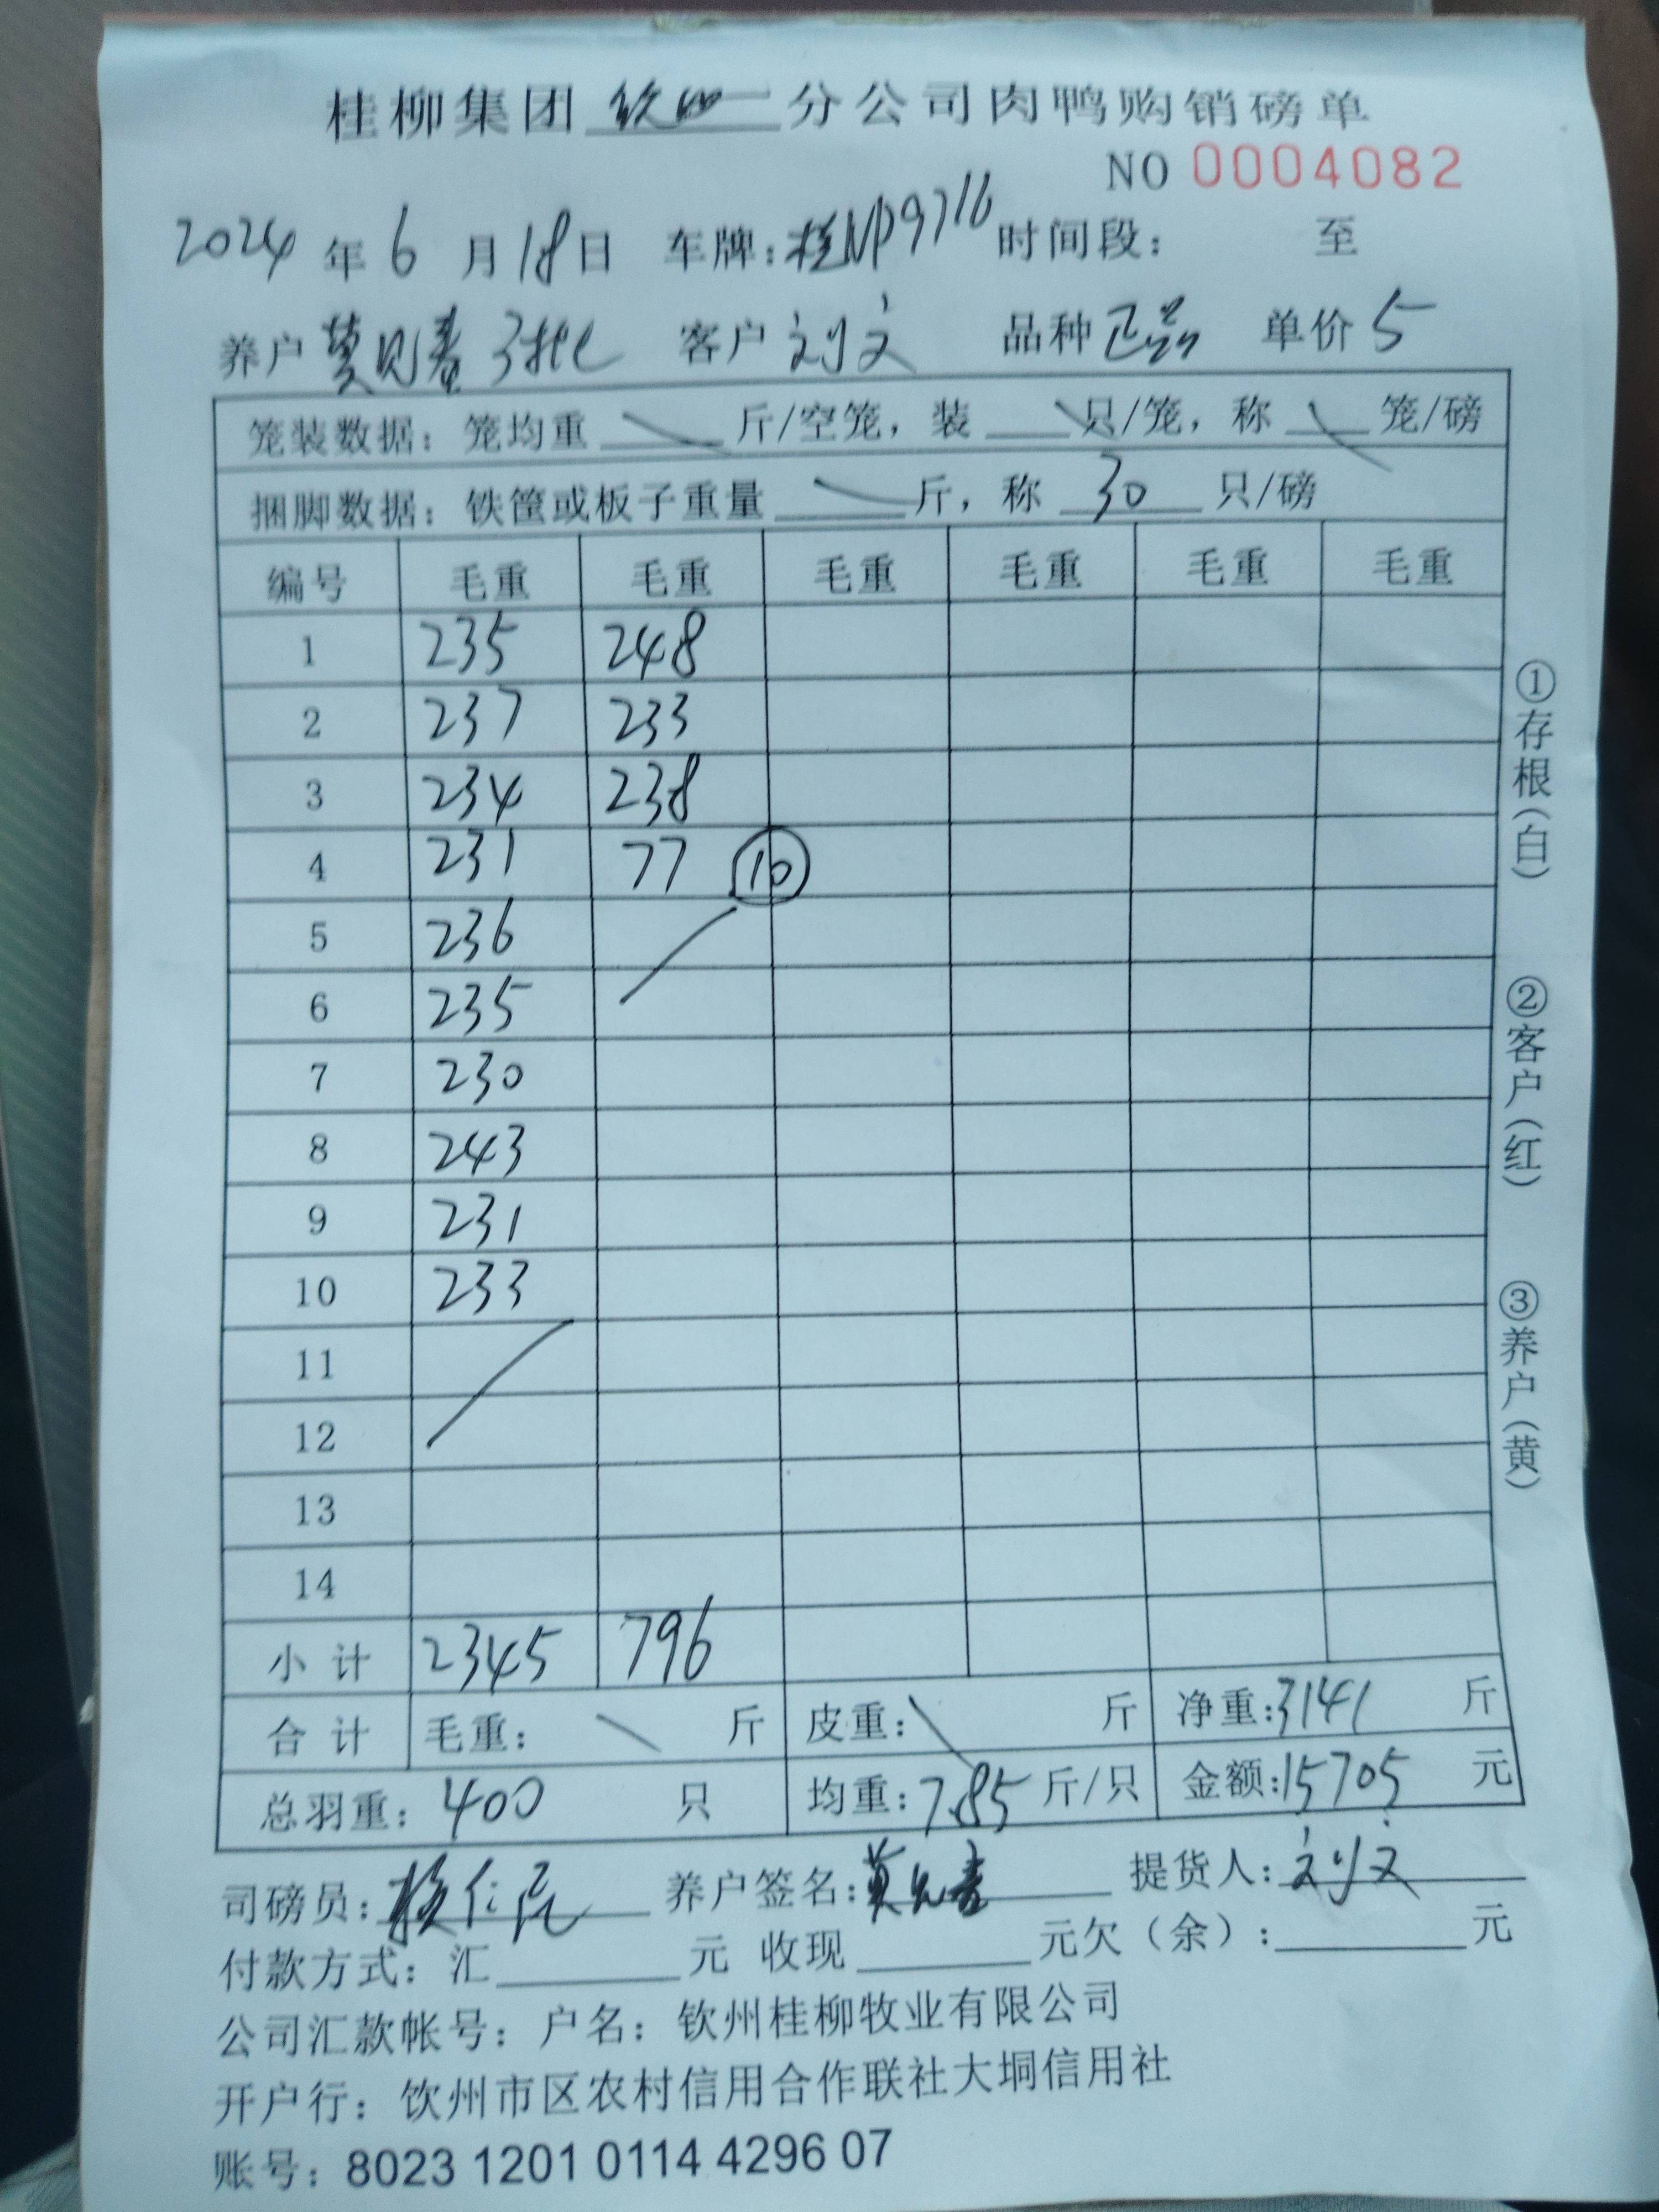 桂柳集团 钦四 分公司肉鸭购销磅单
NO 0004082
2024 年 6 月 18 日 车牌：桂NP9716 时间段： 至
养户 莫见春 3批 客户 刘文 品种 正品 单价 5
笼装数据：笼均重 斤/空笼，装 只/笼，称 笼/磅
捆脚数据：铁筐或板子重量 斤，称 30 只/磅
编号 毛重 毛重 毛重 毛重 毛重 毛重
1 235 248
2 237 233
3 234 238
4 231 77 10
5 236
6 235
7 230
8 243
9 231
10 233
11
12
13
14
小计 2345 796
合计 毛重： 斤 皮重： 斤 净重：3141 斤
总羽重：400 只 均重：7.85 斤/只 金额：15705 元
司磅员： 养户签名：莫见春 提货人：刘文
付款方式：汇 元 收现 元欠（余）： 元
公司汇款帐号：户名：钦州桂柳牧业有限公司
开户行：钦州市区农村信用合作联社大垌信用社
账号：8023 1201 0114 4296 07
①存根（白）
②客户（红）
③养户（黄）